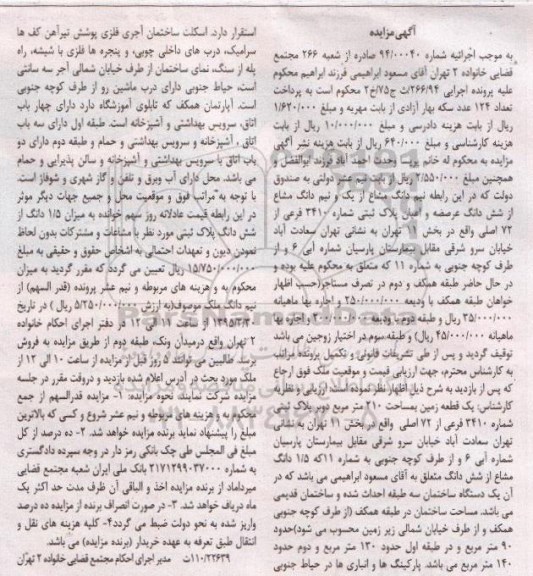 آگهی مزایده
به موجب اجرائیه شماره ۹۴/۰۰۰۴۰ صادره از شعبه ۲۶۶ مجتمع
قضایی خانواده ۲ تهران آقای مسعود ابراهیمی فرزند ابراهیم محکوم
علیه پرونده اجرایی ۲۶۶/۹۴ت ج/۷۵خ۲ محکوم است به پرداخت
تعداد ۱۲۴ عدد سکه بهار آزادی از بابت مهریه و مبلغ ۱/۶۲۰/۰۰۰
ریال از بابت هزینه دادرسی و مبلغ ۱۰/۰۰۰/۰۰۰ ریال از بابت
هزینه کارشناسی و مبلغ ۶۴۰/۰۰۰ ریال از بابت هزینه نشر آگهی
مزایده به محکوم له خانم وحدت احمد آباد فرزند ابوالفضل و
همچنین مبلغ ۲/۵۵۰/۰۰۰ ریال از بابت نیم عشر دولتی به صندوق
دولت که در این رابطه نیم دانگ مشاع از یک و نیم دانگ مشاع
از شش دانگ عرصه و اعیان پلاک ثبتی شماره ۲۴۱۰ فرعی از
۷۲ اصلی واقع در بخش ۱۱ تهران به نشانی تهران سعادت آباد
خیابان سرو شرقی مقابل بیمارستان پارسیان شماره آبی ۶ و از
طرف کوچه جنوبی به شماره ۱۱ که متعلق به محکوم علیه بوده و
در حال حاضر طبقه همکف و دوم در تصرف مستاجر(حسب اظهار
خواهان طبقه همکف با ودیعه ۲۵۰/۰۰۰/۰۰۰ و اجاره بها ماهیانه
۲۵/۰۰۰/۰۰۰ ریال و طبقه دوم ودیعه ۳۰۰/۰۰۰/۰۰۰ اجاره بها
ماهیانه ۴۵/۰۰۰/۰۰۰ ریال) و طبقه سوم در اختیار زوجین می باشد
توقیف گردید و پس از طی تشریفات قانونی و تکمیل پرونده مراتب
به کارشناس محترم، جهت ارزیابی قیمت و موقعیت ملک فوق ارجاع
که پس از بازدید به شرح ذیل اظهار نظر نموده است. ارزیابی و نظریه
کارشناس: یک قطعه زمین بمساحت ۲۱۰ متر مربع دوبر پلاک ثبتی
شماره ۲۴۱۰ فرعی از ۷۲ اصلی واقع در بخش ۱۱ تهران به نشانی
تهران سعادت آباد خیابان سرو شرقی مقابل بیمارستان پارسیان
شماره آبی ۶ و از طرف کوچه جنوبی به شماره ۱۱که ۱/۵ دانگ
مشاع از شش دانگ متعلق به آقای مسعود ابراهیمی می باشد که در
آن یک دستگاه ساختمان سه طبقه احداث شده و ساختمان قدیمی
می باشد. مساحت ساختمان در طبقه همکف (از طرف کوچه جنوبی
همکف و از طرف خیابان شمالی زیر زمین محسوب می شود)حدود
۹۰ متر مربع و در طبقه اول حدود ۱۳۰ متر مربع و دوم حدود
۱۴۰ متر مربع می باشد. پارکینگ ها و انباری ها در حیاط جنوبی
استقرار دارد. اسکلت ساختمان آجری فلزی پوشش تیرآهن کف ها
سرامیک، درب های داخلی چوبی، و پنجره ها فلزی با شیشه، راه
پله از سنگ، نمای ساختمان از طرف خیابان شمالی آجر سه سانتی
است، حیاط جنوبی دارای درب ماشین رو از طرف کوچه جنوبی
است. آپارتمان همکف که تابلوی آموزشگاه دارد دارای چهار باب
اتاق، سرویس بهداشتی و آشپزخانه است. طبقه اول دارای سه باب
اتاق ، آشپزخانه و سرویس بهداشتی و حمام و طبقه دوم دارای دو
باب اتاق با سرویس بهداشتی و آشپزخانه و سالن پذیرایی و حمام
می باشد. محل دارای آب وبرق و تلفن و گاز شهری و شوفاژ است.
با توجه به مراتب فوق و موقعیت محل و جمیع جهات دیگر موثر
در این رابطه قیمت عادلانه روز سهم خوانده به میزان ۱/۵ دانگ از
شش دانگ پلاک ثبتی مورد نظر با مشاعات و مشترکات بدون لحاظ
نمودن دیون و تعهدات احتمالی به اشخاص حقوق و حقیقی به مبلغ
۱۵/۷۵۰/۰۰۰/۰۰۰ ریال تعیین می گردد که مقرر گردید به میزان
محکوم به و هزینه های مربوطه و نیم عشر پرونده (قدر السهم) از
نیم دانگ ملک موصوف(به ارزش ۵/۲۵۰/۰۰۰/۰۰۰ ریال ) در تاریخ
۱۳۹۵/۳/۳۰ از ساعت ۱۱ الی ۱۲ در دفتر اجرای احکام خانواده
۲ تهران واقع درمیدان ونک، طبقه دوم از طریق مزایده به فروش
برسد. طالبین می توانند ۵ روز قبل از مزایده از ساعت ۱۰ الی ۱۲ از
ملک مورد بحث در آدرس اعلام شده بازدید و دروقت مقرر در جلسه
مزایده شرکت نمایند. نحوه مزایده: ۱- مزایده قدرالسهم از جمع
محکوم به و هزینه های مربوطه و نیم عشر شروع و کسی که بالاترین
مبلغ را پیشنهاد نماید برنده مزایده خواهد شد. ۲- ده درصد از کل
مبلغ فی المجلس طی چک بانکی رمز دار در وجه سپرده دادگستری
به شماره ۲۱۷۱۲۹۹۰۳۷۰۰۰ بانک ملی ایران شعبه مجتمع قضایی
میرداماد از برنده مزایده اخذ و الباقی آن ظرف مدت حد اکثر یک
ماه دریافت خواهد شد. ۳- در صورت انصراف برنده از مزایده ده درصد
واریز شده به نحو دولت ضبط می گردد۴- کلیه هزینه های نقل و
انتقال طبق تعرفه به عهده خریدار (برنده مزایده) می باشد.
۱۱۰/۲۲۶۳۹ت مدیر اجرای احکام مجتمع قضایی خانواده ۲ تهران